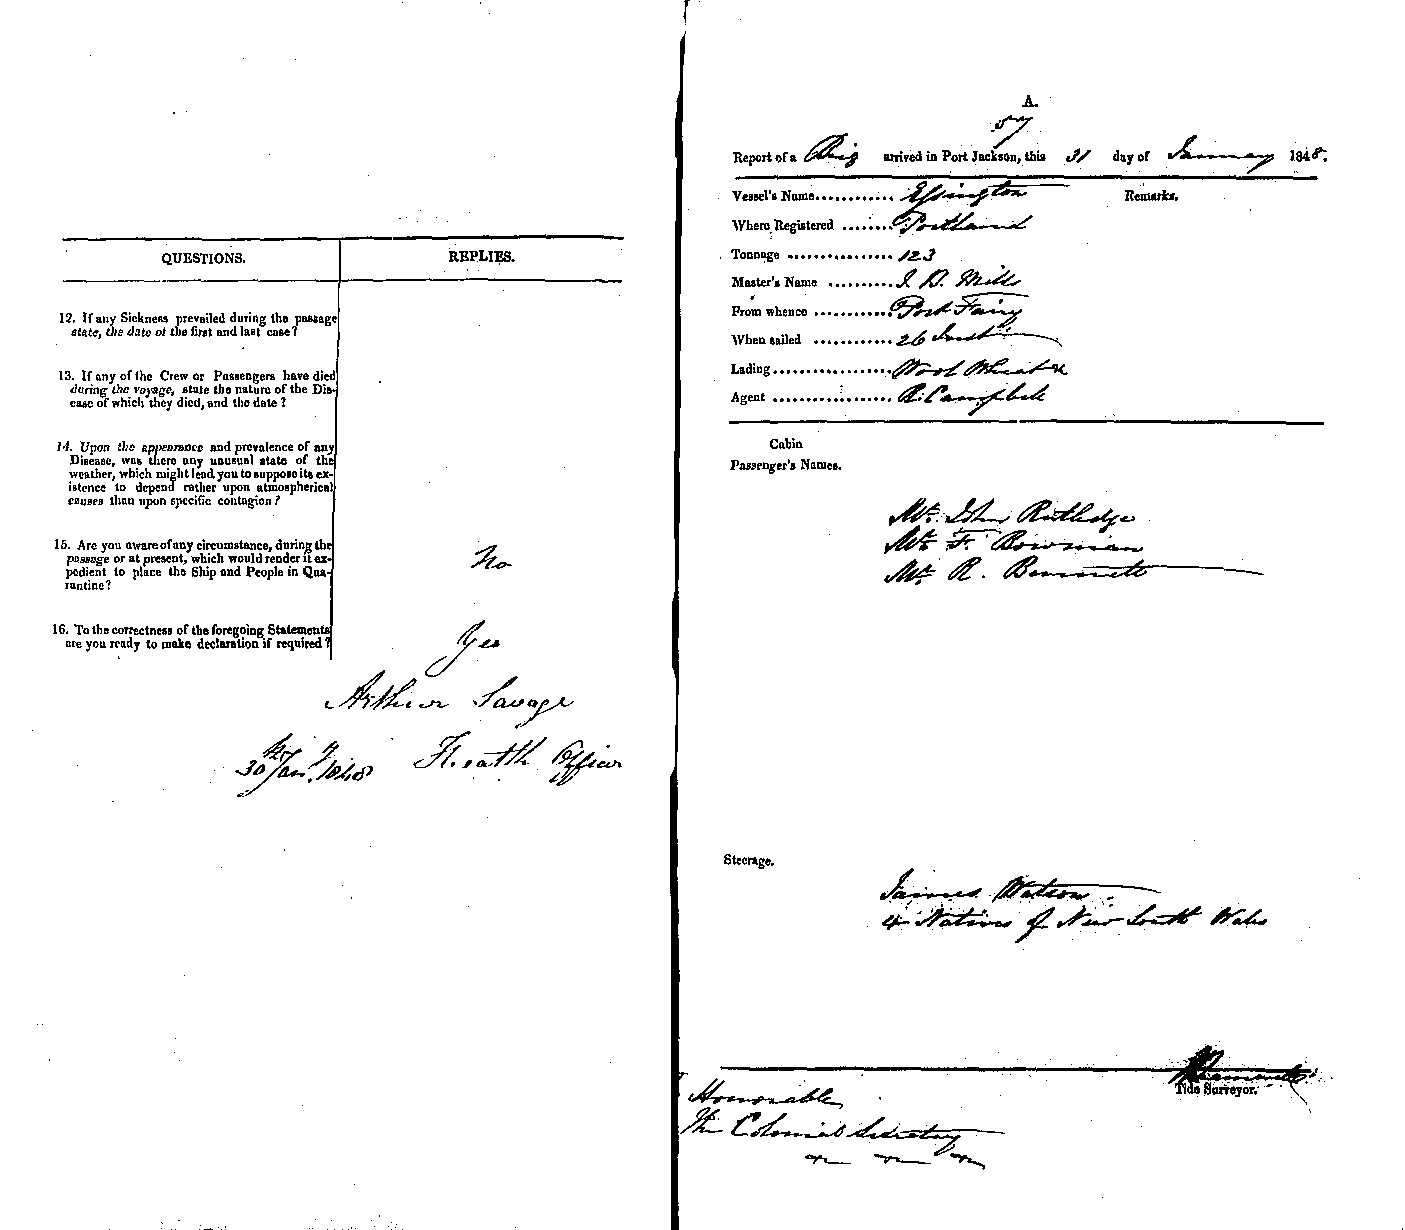 QUESTIONS. REPLIES.
12. If any Sickness prevailed during the passage
state, the date of the first and last case?
13. If any of the Crew or Passengers have died
during the voyage, state the nature of the Dis-
ease of which they died, and the date?
14. Upon the appearance and prevalence of any
Disease, was there any unusual state of the
weather, which might lead you to suppose its ex-
istence to depend rather upon atmospherical
causes than upon specific contagion?
15. Are you aware of any circumstance, during the
passage or at present, which would render it ex-
pedient to place the Ship and People in Qua-
rantine?
No
16. To the correctness of the foregoing Statements
are you ready to make declaration if required?
Yes
Arthur Savage
Health Officer
30th Jany. 1848
A.
57
Report of a Brig arrived in Port Jackson, this 31 day of January 1848.
Vessel's Name............ Essington Remarks.
Where Registered ........ Portland
Tonnage ................ 123
Master's Name .......... J. D. Mills
From whence ............ Port Fairy
When sailed ............ 26 Inst
Lading.................. Wool Wheat &c
Agent .................. R. Campbell
Cabin
Passenger's Names.
Mr. John Rutledge
Mr. F. Bowman
Mr. R. Bennett
Steerage.
James Watson
4 Natives of New South Wales
Tide Surveyor.
Honorable
The Colonial Secretary